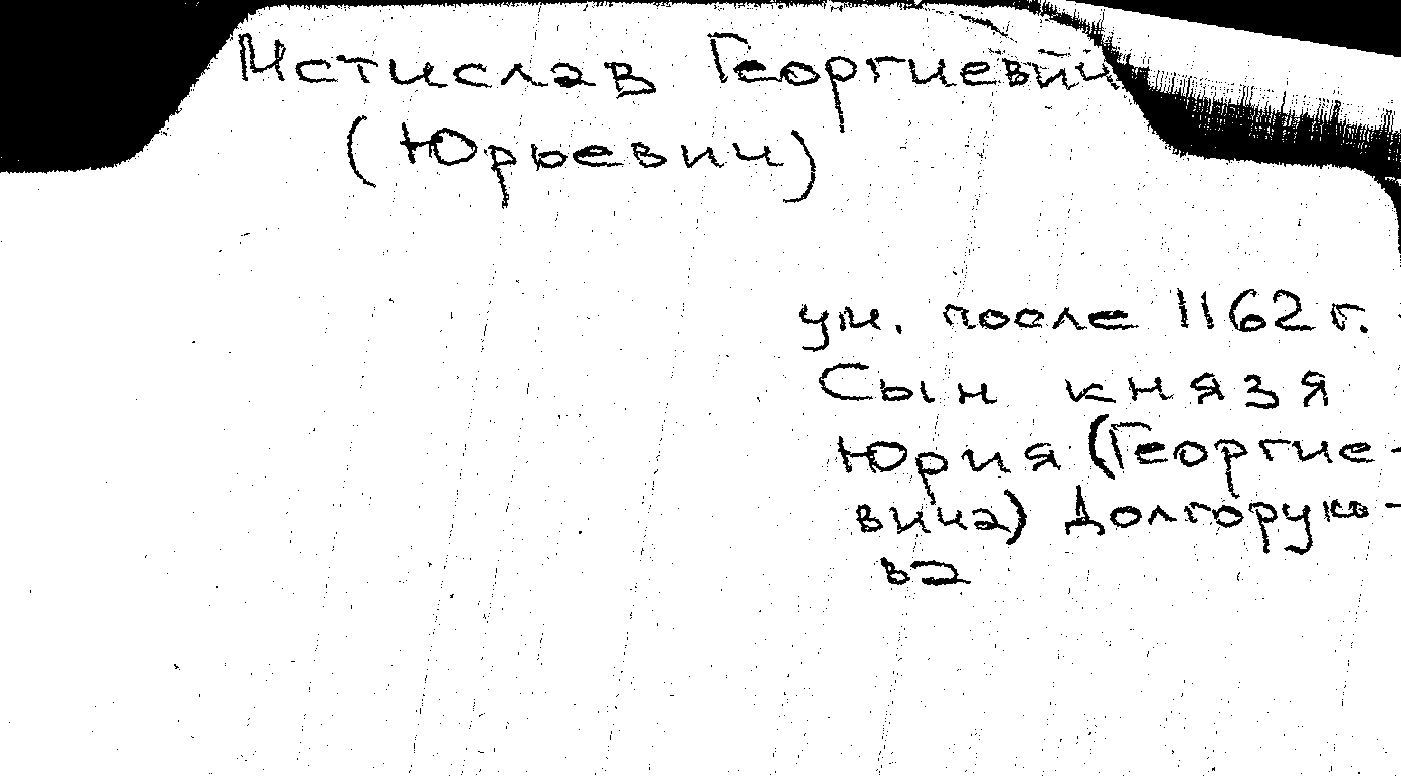 Мстислав Георгиевич
(Юрьевич)
ум. после 1162 г.
Сын князя
Юрия (Георгие-
вича) Долгоруко-
ва